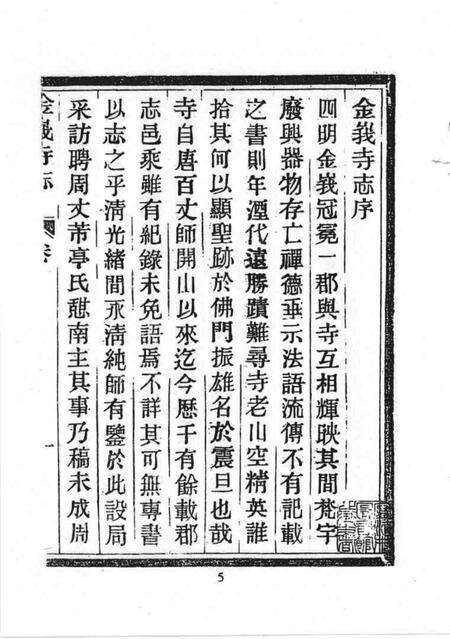 金峩寺志序
四明金峩冠冕一郡與寺互相輝映其間梵宇
廢興器物存亡禪德垂示法語流傳不有記載
之書則年湮代遠勝蹟難尋寺老山空精英誰
拾其何以顯聖跡於佛門振雄名於震旦也哉
寺自唐百丈師開山以來迄今歷千有餘載郡
志邑乘雖有紀錄未免語焉不詳其可無專書
以志之乎清光緒間永清純師有鑒於此設局
采訪聘周丈芾亭氏憇南主其事乃稿未成周
金峩寺志
卷
一
5